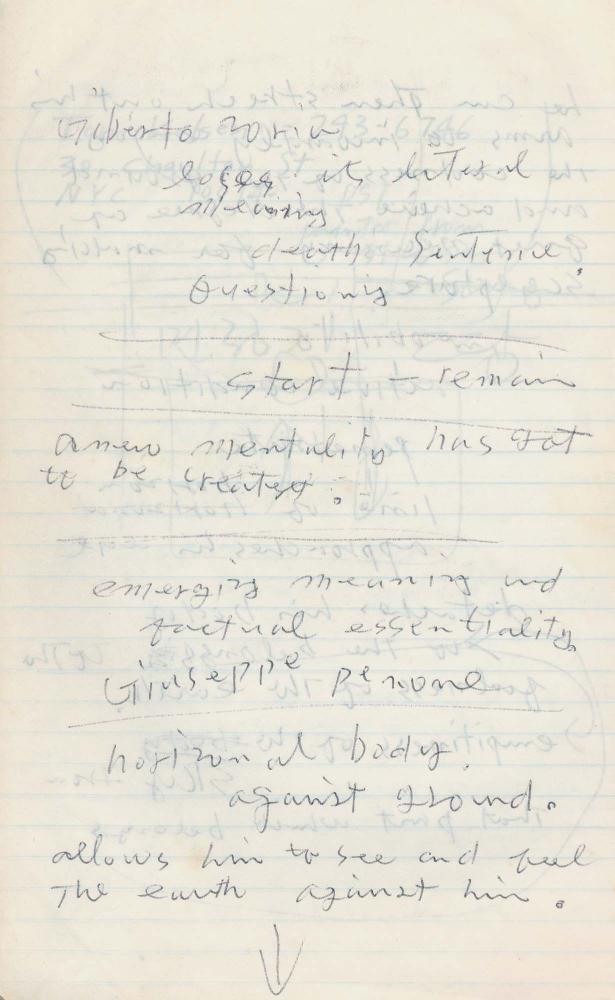 Gilberto Zorio
loses its literal
meaning
death Sentence.
Questioning
start – remain
a new mentality has got
to be created.
emerging meaning and
factual essentiality,
Giuseppe Penone
horizonal body.
against ground.
allows him to see and feel
The earth against him.